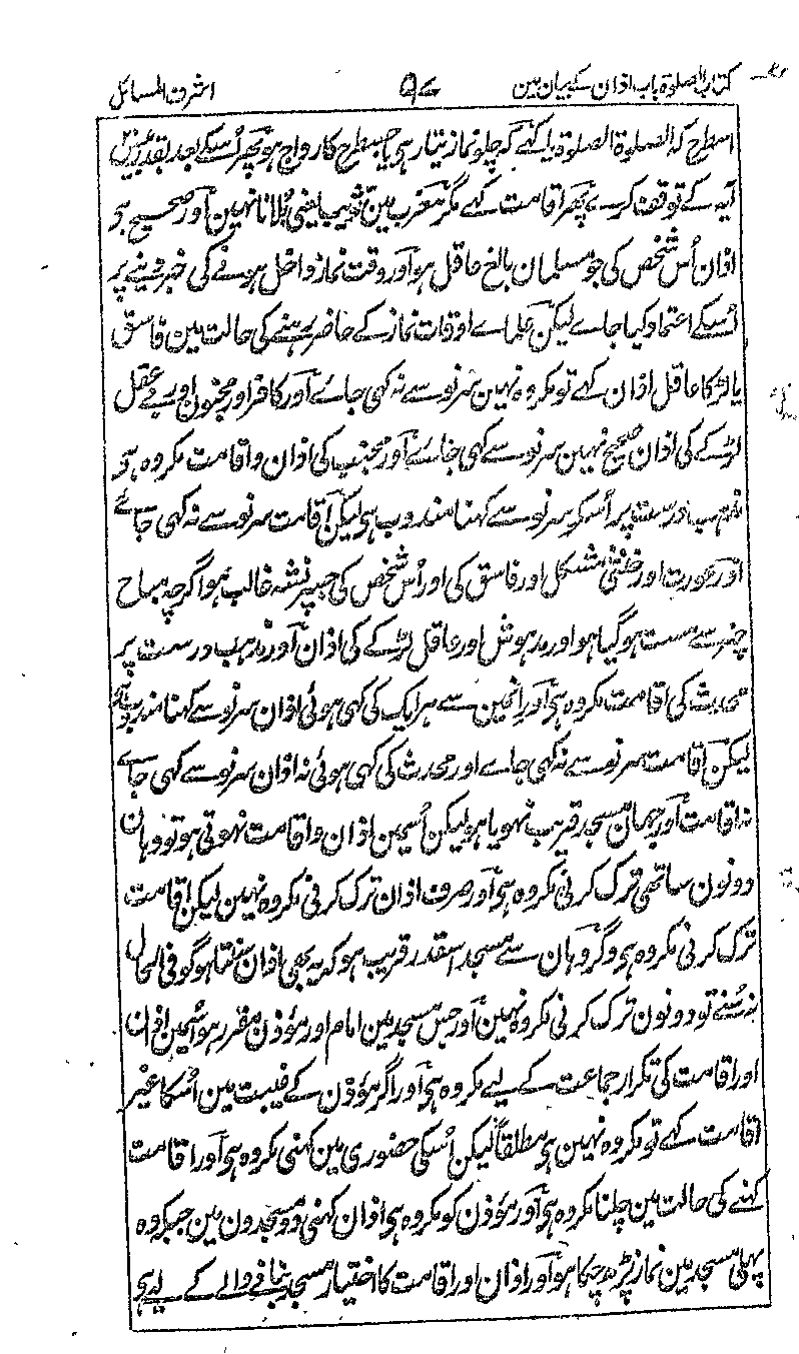 کتاب الصلوة باب اذان کے بیان مین ۹۷ اشرف المسائل
اسطرح کہ الصلوة الصلوة یا کہے کہ چلو نماز تیار ہی یا جسطرح کا رواج ہو پھر اُسکے بعد بقدر تین
آیہ کے توقف کرے پھر اقامت کہے مگر مغرب مین تثویب یعنی بُلانا نہین اور صحیح ہو
اذان اُس شخص کی جو مسلمان بالغ عاقل ہو اور وقت نماز داخل ہونے کی خبر دینے پر
اُسکے اعتماد کیا جاے لیکن علماے اوقات نماز کے حاضر رہنے کی حالت مین فاسق
یا لڑکا عاقل اذان کہے تو مکروہ نہین سر نو سے نہ کہی جائے اور کافر اور مجنون اور بے عقل
لڑکے کی اذان صحیح نہین سر نو سے کہی جائے اور جنب کی اذان و اقامت مکروہ ہو
مذہب درست پر اُسکو سر نو سے کہنا مندوب ہی لیکن اقامت سر نو سے نہ کہی جائے
اور عورت اور خنثی مشکل اور فاسق کی اور اُس شخص کی جسپر نشہ غالب ہو اگرچہ مباح
چیز سے مست ہو گیا ہو اور مدہوش اور عاقل لڑکے کی اذان اور مذہب درست پر
محدث کی اقامت مکروہ ہی اور انمین سے ہر ایک کی کہی ہوئی اذان سر نو سے کہنا مندوب ہی
لیکن اقامت سر نو سے نہ کہی جاے اور محدث کی کہی ہوئی نہ اذان سر نو سے کہی جاے
نہ اقامت اور جہان مسجد قریب نہو یا ہو لیکن اُسمین اذان و اقامت نہوتی ہو تو وہان
دونون ساتھی ترک کرنی مکروہ ہی اور صرف اذان ترک کرنی مکروہ نہین لیکن اقامت
ترک کرنی مکروہ ہی و گر وہان سے مسجد اسقدر قریب ہو کہ یہ بھی اذان سنتا ہو گو فی الحال
نہ سُنے تو دونون ترک کرنی مکروہ نہین اور جس مسجد مین امام اور مؤذن مقرر ہو اُسمین اذان
اور اقامت کی تکرار جماعت کے لیے مکروہ ہی اور اگر مؤذن کے غیبت مین اُسکا غیر
اقامت کہے تو مکروہ نہین ہی مطلقاً لیکن اُسکی حضوری مین کہنی مکروہ ہی اور اقامت
کہنے کی حالت مین چلنا مکروہ ہی اور مؤذن کو مکروہ ہی اذان کہنی دو مسجدون مین جبکہ وہ
پہلی مسجد مین نماز پڑھ چکا ہو اور اذان اور اقامت کا اختیار مسجد بنانے والے کے لیے ہی